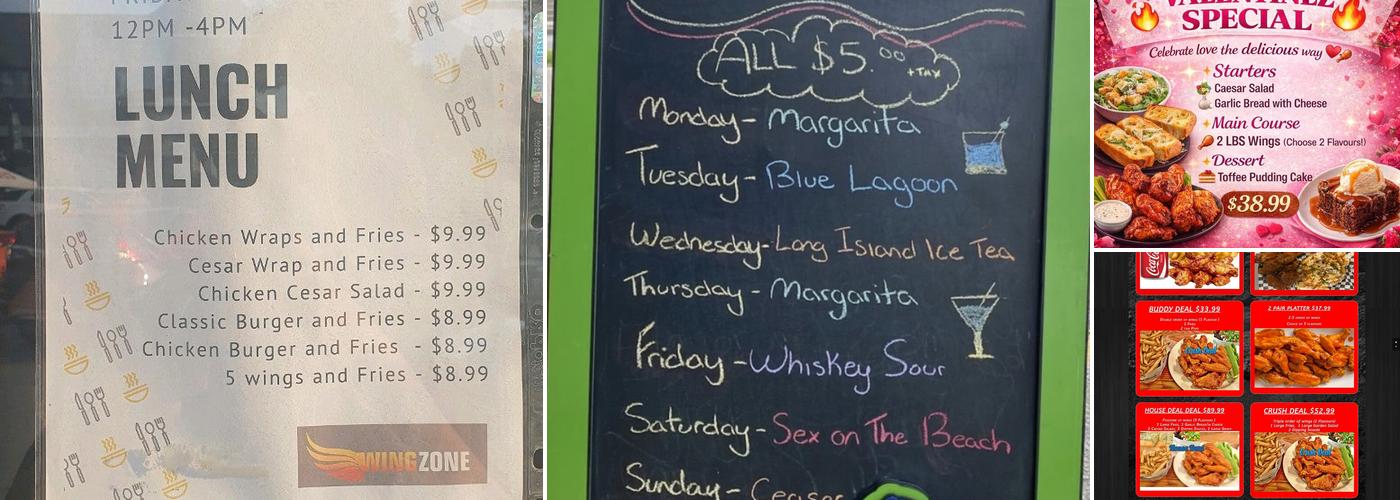 12PM -4PM
LUNCH
MENU
Chicken Wraps and Fries - $9.99
Cesar Wrap and Fries - $9.99
Chicken Cesar Salad - $9.99
Classic Burger and Fries - $8.99
Chicken Burger and Fries - $8.99
5 wings and Fries - $8.99
WINGZONE
ALL $5.00
+TAX
Monday - Margarita
Tuesday - Blue Lagoon
Wednesday - Long Island Ice Tea
Thursday - Margarita
Friday - Whiskey Sour
Saturday - Sex on The Beach
Sunday - Ceasar
SPECIAL
Celebrate love the delicious way
Starters
Caesar Salad
Garlic Bread with Cheese
Main Course
2 LBS Wings (Choose 2 Flavours!)
Dessert
Toffee Pudding Cake
$38.99
BUDDY DEAL $33.99
2 PAIR PLATTER $37.99
HOUSE DEAL DEAL $89.99
CRUSH DEAL $52.99